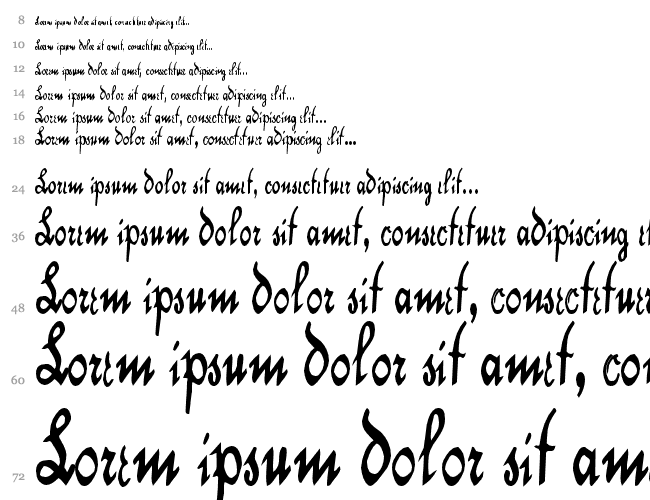 8 Lorem ipsum dolor sit amet, consectetuer adipiscing elit...
10 Lorem ipsum dolor sit amet, consectetuer adipiscing elit...
12 Lorem ipsum dolor sit amet, consectetuer adipiscing elit...
14 Lorem ipsum dolor sit amet, consectetuer adipiscing elit...
16 Lorem ipsum dolor sit amet, consectetuer adipiscing elit...
18 Lorem ipsum dolor sit amet, consectetuer adipiscing elit...
24 Lorem ipsum dolor sit amet, consectetuer adipiscing elit...
36 Lorem ipsum dolor sit amet, consectetuer adipiscing el
48 Lorem ipsum dolor sit amet, consectetuer
60 Lorem ipsum dolor sit amet, con
72 Lorem ipsum dolor sit am